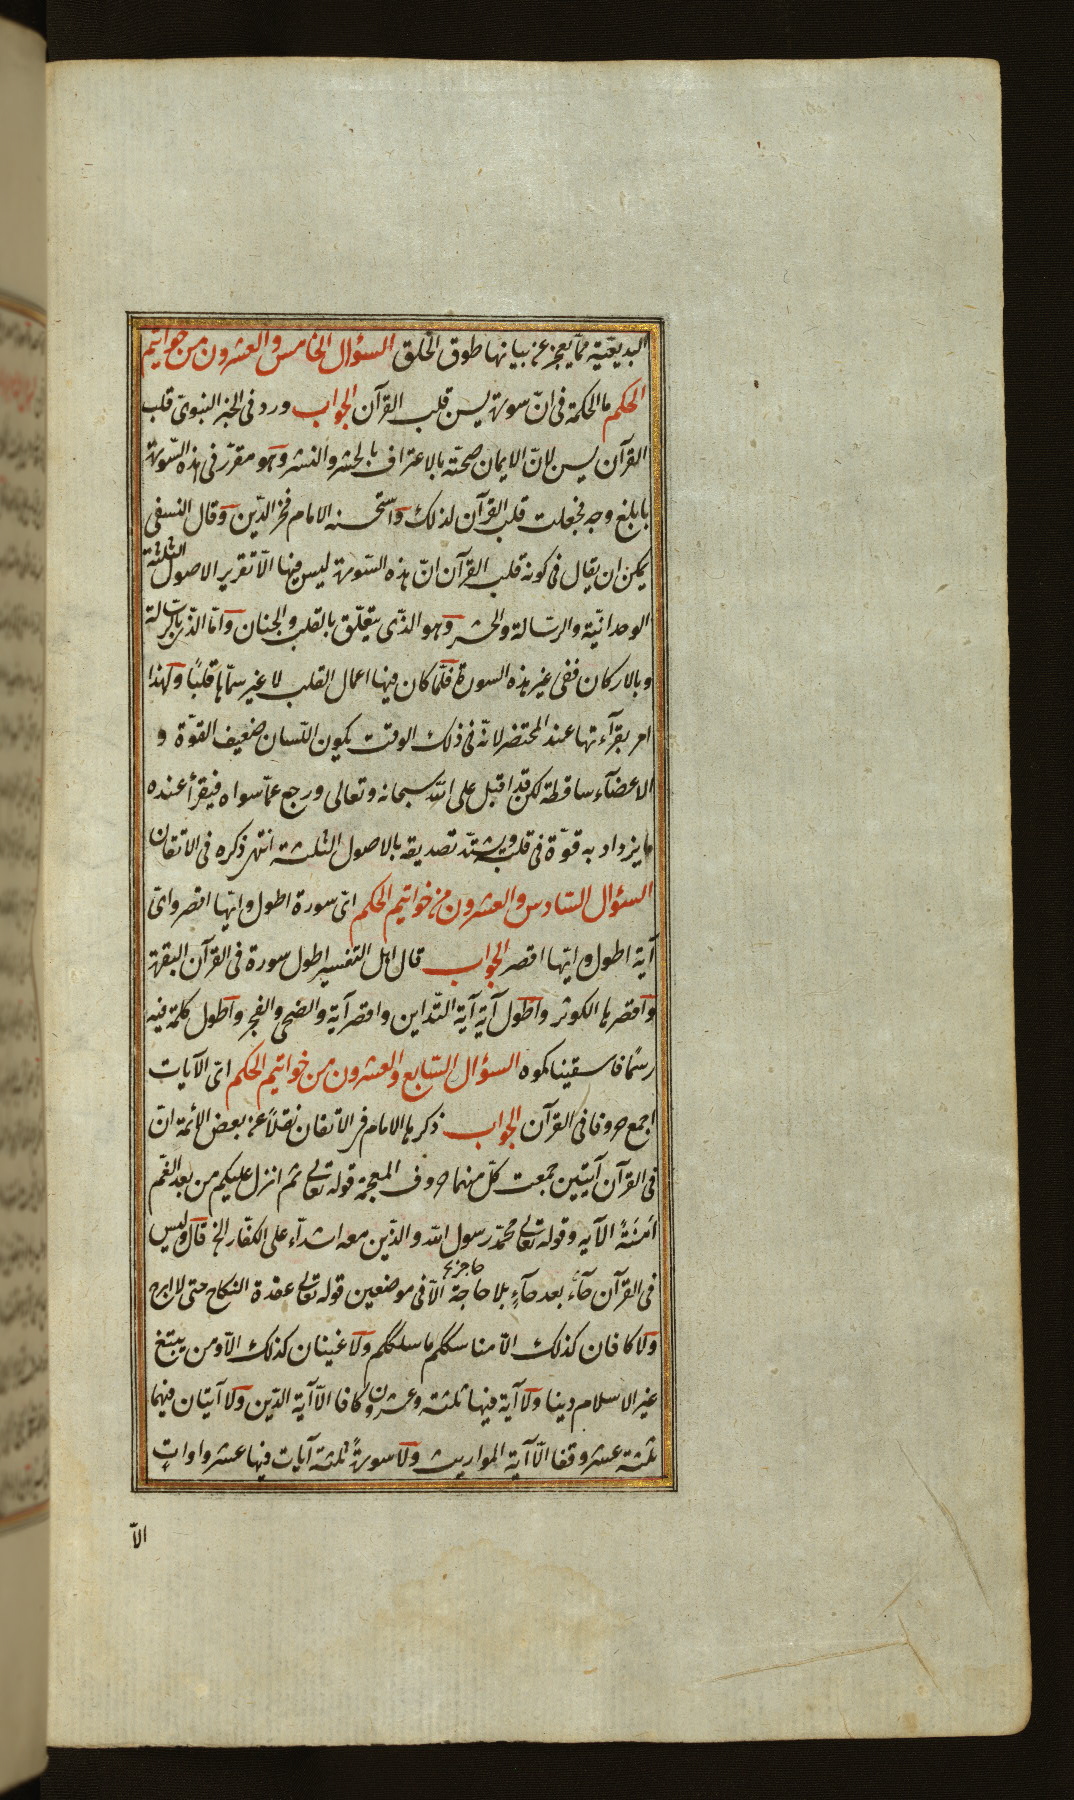 البديعيّة ممّا يعجز عن بيانها طوق الخلق السؤال الخامس والعشرون من خواتيم
الحكم ما الحكمة فى انّ سورة يس قلب القرآن الجواب ورد فى الخبر النبوىّ قلب
القرآن يس لانّ الايمان صحّته بالاعتراف بالحشر والنشر وهو مقرّر فى هذه السّورة
بابلغ وجه فجعلت قلب القرآن لذلك واستحسنه الامام فخر الدّين وقال النسفى
يمكن ان يقال فى كونه قلب القرآن انّ هذه السّورة ليس فيها الّا تقرير الاصول الثلثة
الوحدانيّة والرسّالة والحشر وهو الذّى يتعلّق بالقلب والجنان وامّا الذّى باللسان
وبالاركان ففى غير هذه السورة فلمّا كان فيها اعمال القلب لا غير سمّاها قلبًا ولهذا
امر بقرآءتها عند المحتضر لانّه فى ذلك الوقت يكون اللّسان ضعيف القوّة و
الاعضآء ساقطة لكن قد اقبل على اللّه سبحانه وتعالى ورجع عمّا سواه فيقرأ عنده
ما يزداد به قوّة فى قلبه ويشتدّ تصديقه بالاصول الثلثة انتهى ذكره فى الاتقان
السؤال السّادس والعشرون من خواتيم الحكم اىّ سورة اطول وايّها اقصر واىّ
آية اطول وايّها اقصر الجواب قال اهل التفسير اطول سورة فى القرآن البقرة
واقصرها الكوثر واطول آية آية التّداين واقصر آية والضحى والفجر واطول كلمة فيه
رسمًا فاسقيناكموه السؤال السّابع والعشرون من خواتيم الحكم اىّ الآيات
اجمع حروفا فى القرآن الجواب ذكرها الامام فى الاتقان نقلاً عن بعض الأئمة انّ
فى القرآن آيتين جمعت كلّ منهما حروف المعجمة قوله تعالى ثم انزل عليكم من بعد الغمّ
اَمَنَةً الآيه وقوله تعالى محمّد رسول اللّه والذّين معه اشدّآء على الكفّار الخ قال وليس
فى القرآن حآء بعد حآءٍ بلا حاجة حاجز الّا فى موضعين قوله تعالى عقدة النكاح حتى لا ابرح
ولا كافان كذلك الّا مناسككم ما سلككم ولا غينان كذلك الّا ومن يبتغ
غير الاسلام دينا ولا آية فيها ثلثة وعشرون كافا الّا آية الدّين ولا آيتان فيهما
ثلثة عشر وقفا الّا آية المواريث ولا سورةً ثلثة آيات فيها عشر واواتٍ
الّا